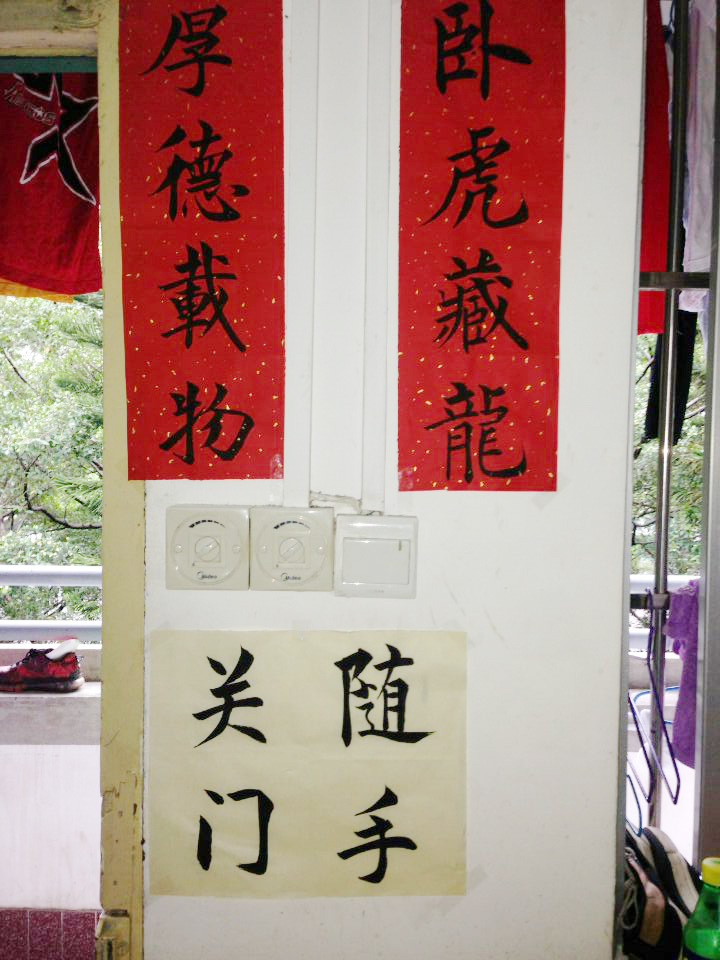 卧虎藏龍
厚德載物
随手
关门
Midea
Midea